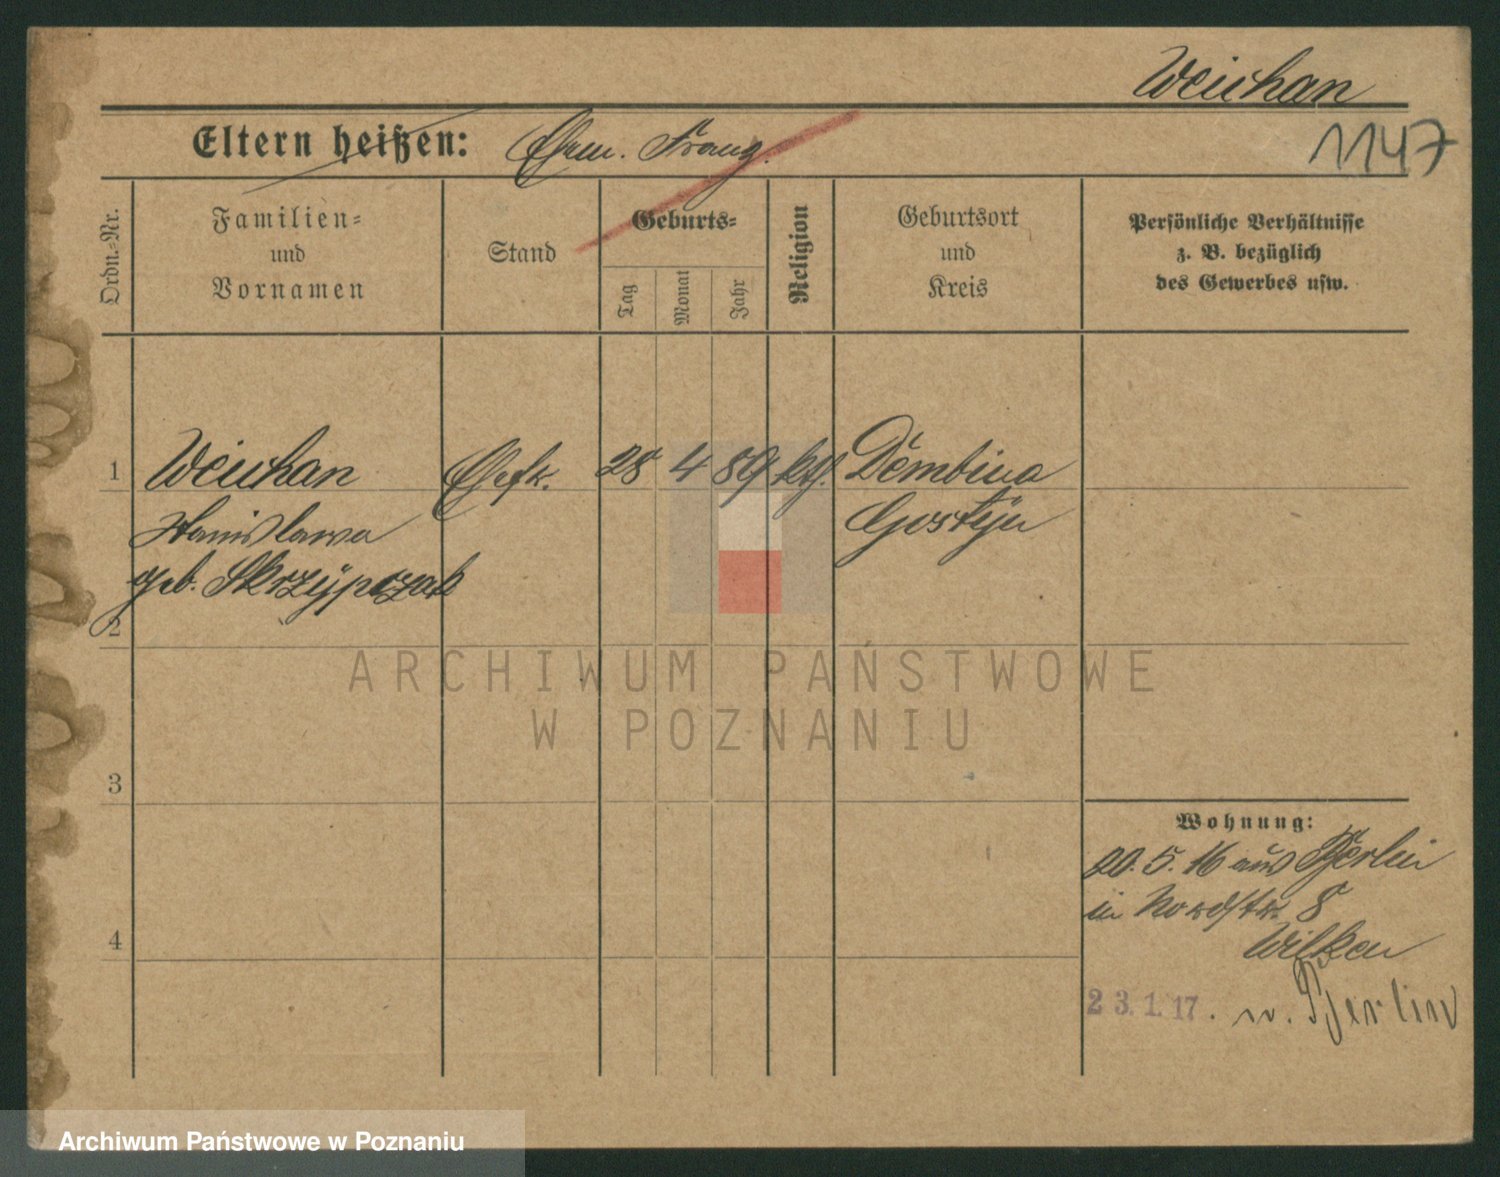 Weichan
1147
Eltern heißen: Ehem. Franz.
Ordn.-Nr.
Familien-
und
Vornamen
Stand
Geburts-
Tag
Monat
Jahr
Religion
Geburtsort
und
Kreis
Persönliche Verhältnisse
z. B. bezüglich
des Gewerbes usw.
1 Weichan Ehefr. 28 4 89 kth. Dembina
Stanislawa Gostyn
geb. Skrzypczak
2
ARCHIWUM PAŃSTWOWE
W POZNANIU
3
Wohnung:
20.5.16 aus Berlin
in Nordstr. 8
Wilken
4
23.1.17. n. Berlin
Archiwum Państwowe w Poznaniu